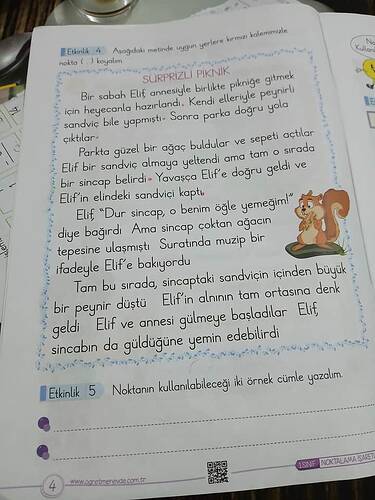 Etkinlik 4 Aşağıdaki metinde uygun yerlere kırmızı kalemimizle
nokta (.) koyalım.
SÜRPRİZLİ PİKNİK
Bir sabah Elif, annesiyle birlikte pikniğe gitmek
için heyecanla hazırlandı. Kendi elleriyle peynirli
sandviç bile yapmıştı. Sonra parka doğru yola
çıktılar.
Parkta güzel bir ağaç buldular ve sepeti açtılar
Elif bir sandviç almaya yeltendi ama tam o sırada
bir sincap belirdi. Yavaşça Elif'e doğru geldi ve
Elif'in elindeki sandviçi kaptı.
Elif, "Dur sincap, o benim öğle yemeğim!"
diye bağırdı Ama sincap çoktan ağacın
tepesine ulaşmıştı Suratında muzip bir
ifadeyle Elif'e bakıyordu
Tam bu sırada, sincaptaki sandviçin içinden büyük
bir peynir düştü Elif'in alnının tam ortasına denk
geldi Elif ve annesi gülmeye başladılar Elif,
sincabın da güldüğüne yemin edebilirdi
Etkinlik 5 Noktanın kullanılabileceği iki örnek cümle yazalım.
4
www.ogretmenevde.com.tr
1.SINIF NOKTALAMA İŞARET
No
Kullanı
E